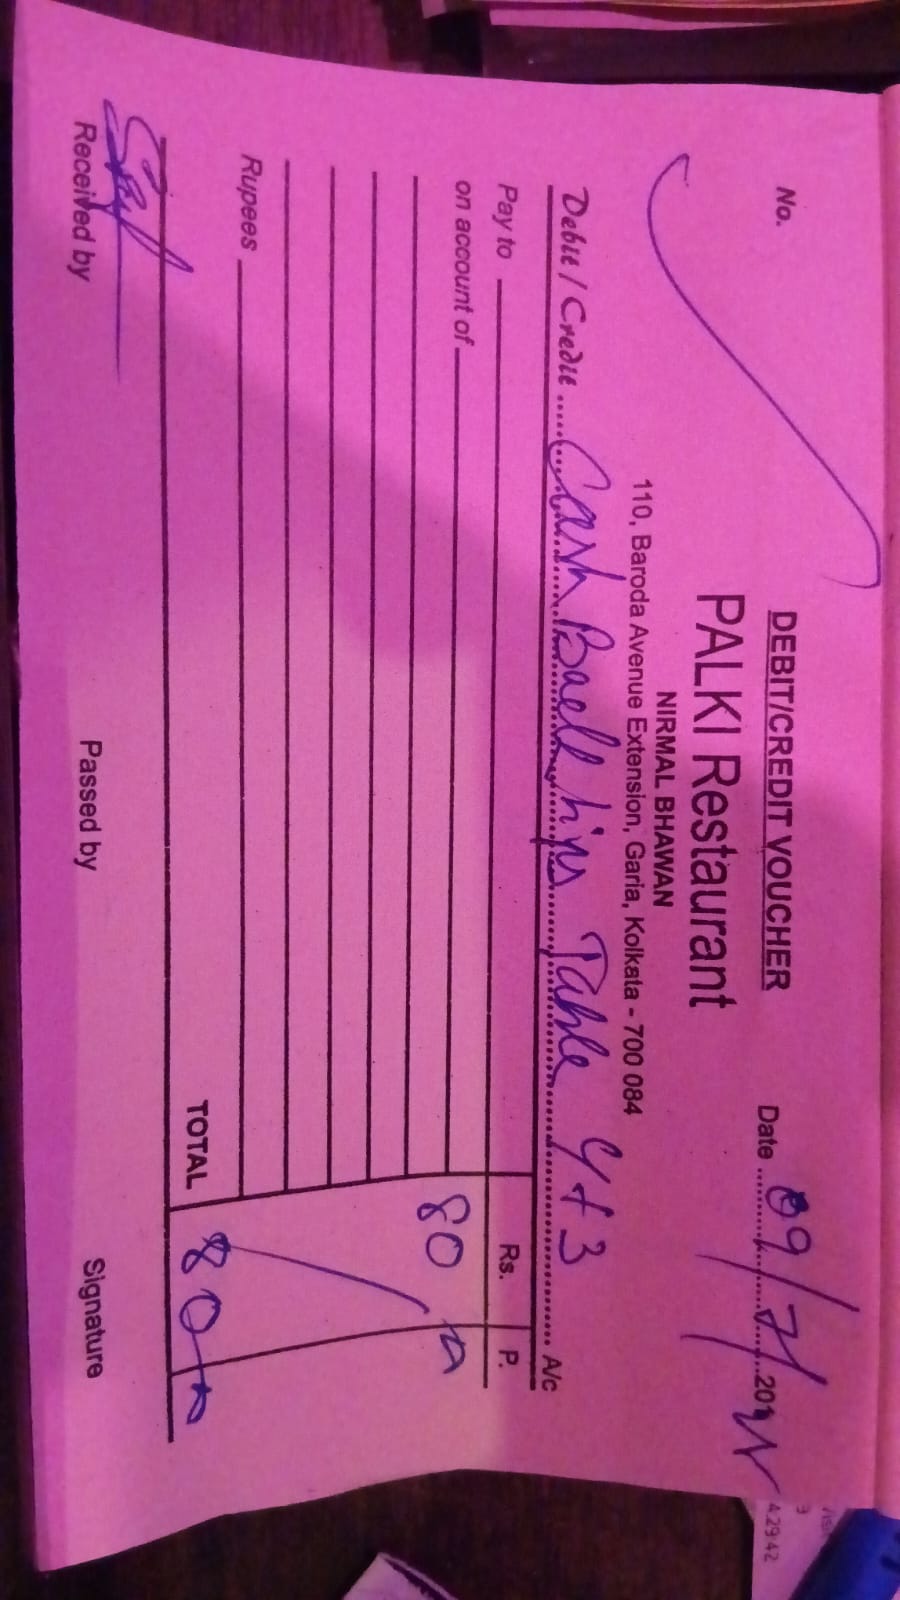 DEBIT/CREDIT VOUCHER
No.
PALKI Restaurant
Date 09/7/20
NIRMAL BHAWAN
110, Baroda Avenue Extension, Garia, Kolkata - 700 084
Debit / Credit Cash Back tips Table 4+3 A/c
Pay to Rs. P.
on account of 80
Rupees
TOTAL 80
Received by Passed by Signature
4:29:42